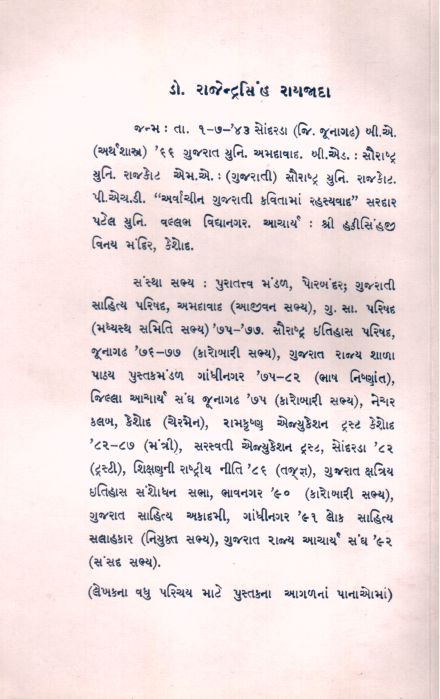 ડો. રાજેન્દ્રસિંહ રાયજાદા
જન્મ : તા. ૧-૭-'૪૩ સોંદરડા (જિ. જૂનાગઢ) બી.એ.
(અર્થશાસ્ત્ર) '૬૬ ગુજરાત યુનિ. અમદાવાદ. બી.એડ. : સૌરાષ્ટ્ર
યુનિ. રાજકોટ એમ.એ. : (ગુજરાતી) સૌરાષ્ટ્ર યુનિ. રાજકોટ.
પી.એચ.ડી. “અર્વાચીન ગુજરાતી કવિતામાં રહસ્યવાદ” સરદાર
પટેલ યુનિ. વલ્લભ વિદ્યાનગર. આચાર્ય : શ્રી હઠીસિંહજી
વિનય મંદિર, કેશોદ.
સંસ્થા સભ્ય : પુરાતત્ત્વ મંડળ, પોરબંદર; ગુજરાતી
સાહિત્ય પરિષદ, અમદાવાદ (આજીવન સભ્ય), ગુ. સા. પરિષદ
(મધ્યસ્થ સમિતિ સભ્ય) '૭૫-'૭૭. સૌરાષ્ટ્ર ઇતિહાસ પરિષદ,
જૂનાગઢ '૭૬-૭૭ (કારોબારી સભ્ય), ગુજરાત રાજ્ય શાળા
પાઠ્ય પુસ્તકમંડળ ગાંધીનગર '૭૫-૮૨ (ભાષ નિષ્ણાંત),
જિલ્લા આચાર્ય સંઘ જૂનાગઢ '૭૫ (કારોબારી સભ્ય), નેચર
કલબ, કેશોદ (ચેરમેન), રામકૃષ્ણ એજ્યુકેશન ટ્રસ્ટ કેશોદ
'૮૨-૮૭ (મંત્રી), સરસ્વતી એજ્યુકેશન ટ્રસ્ટ, સોંદરડા '૮૨
(ટ્રસ્ટી), શિક્ષણની રાષ્ટ્રીય નીતિ '૮૬ (તજ્જ્ઞ), ગુજરાત ક્ષત્રિય
ઇતિહાસ સંશોધન સભા, ભાવનગર '૯૦ (કારોબારી સભ્ય),
ગુજરાત સાહિત્ય અકાદમી, ગાંધીનગર '૯૧ લોક સાહિત્ય
સલાહકાર (નિયુક્ત સભ્ય), ગુજરાત રાજ્ય આચાર્ય સંઘ '૯૨
(સંસદ સભ્ય).
(લેખકના વધુ પરિચય માટે પુસ્તકના આગળનાં પાનાઓમાં)